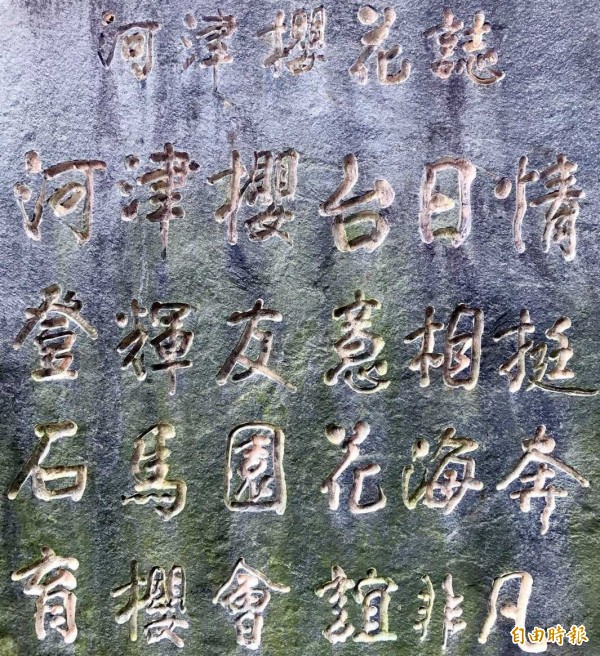 河津櫻花誌
河津櫻台日情
登輝友意相挺
石馬園花海奔
育櫻會誼非凡
自由時報